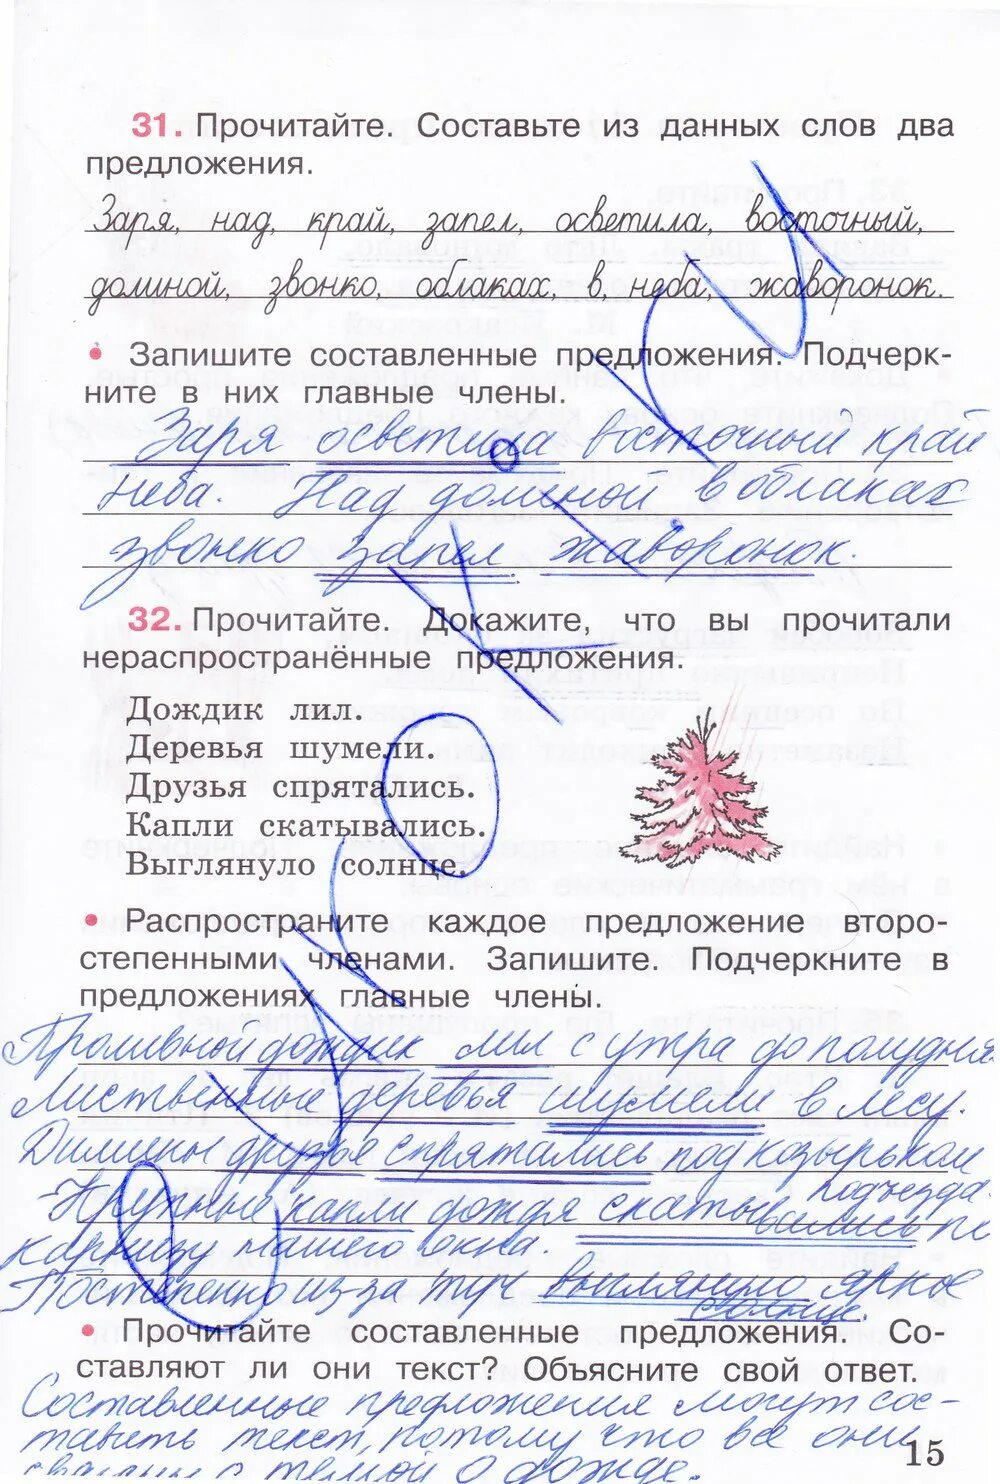 31. Прочитайте. Составьте из данных слов два
предложения.
Заря, над, край, запел, осветила, восточный,
долиной, звонко, облаках, в, неба, жаворонок.
• Запишите составленные предложения. Подчерк-
ните в них главные члены.
Заря осветила восточный край
неба. Над долиной в облаках
звонко запел жаворонок.
32. Прочитайте. Докажите, что вы прочитали
нераспространённые предложения.
Дождик лил.
Деревья шумели.
Друзья спрятались.
Капли скатывались.
Выглянуло солнце.
• Распространите каждое предложение второ-
степенными членами. Запишите. Подчеркните в
предложениях главные члены.
Проливной дождик лил с утра до полудня.
Лиственные деревья шумели в лесу.
Димины друзья спрятались под козырьком
подъезда.
Крупные капли дождя скатывались по
карнизу нашего окна.
Постепенно из за туч выглянуло яркое
солнце.
• Прочитайте составленные предложения. Со-
ставляют ли они текст? Объясните свой ответ.
Составленные предложения могут сос-
тавить текст, потому что все они
связаны с темой о дожде.
15